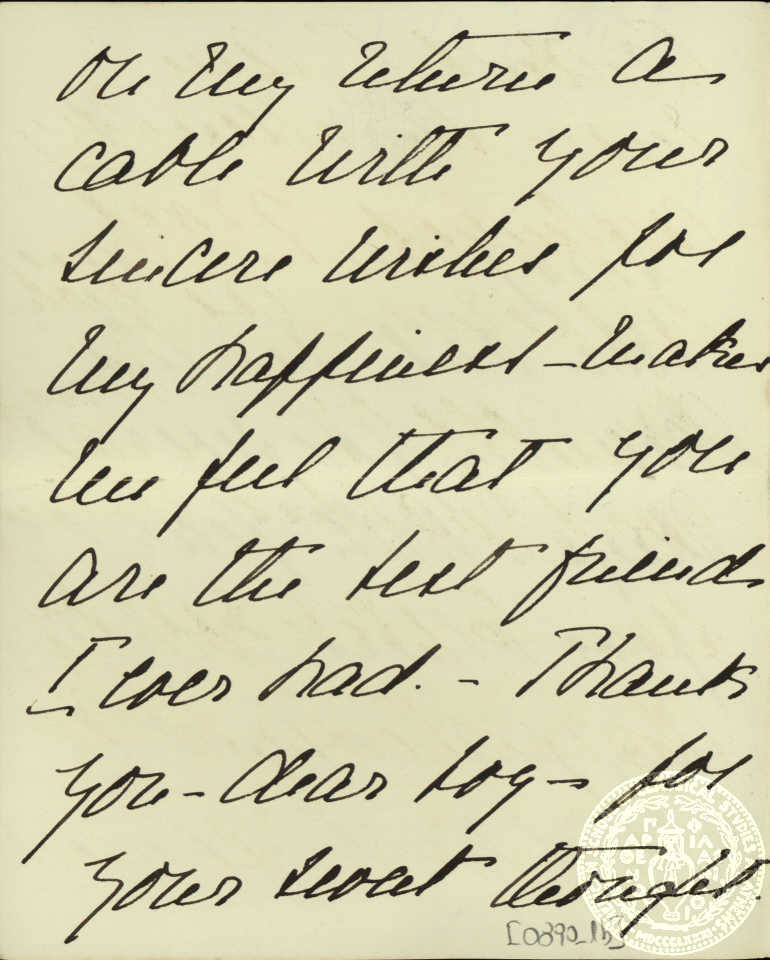 on my return a
cable with your
sincere wishes for
my happiness – makes
me feel that you
are the best friend
I ever had. – Thank
you – dear boy – for
your sweet thought.
[0890_1b]